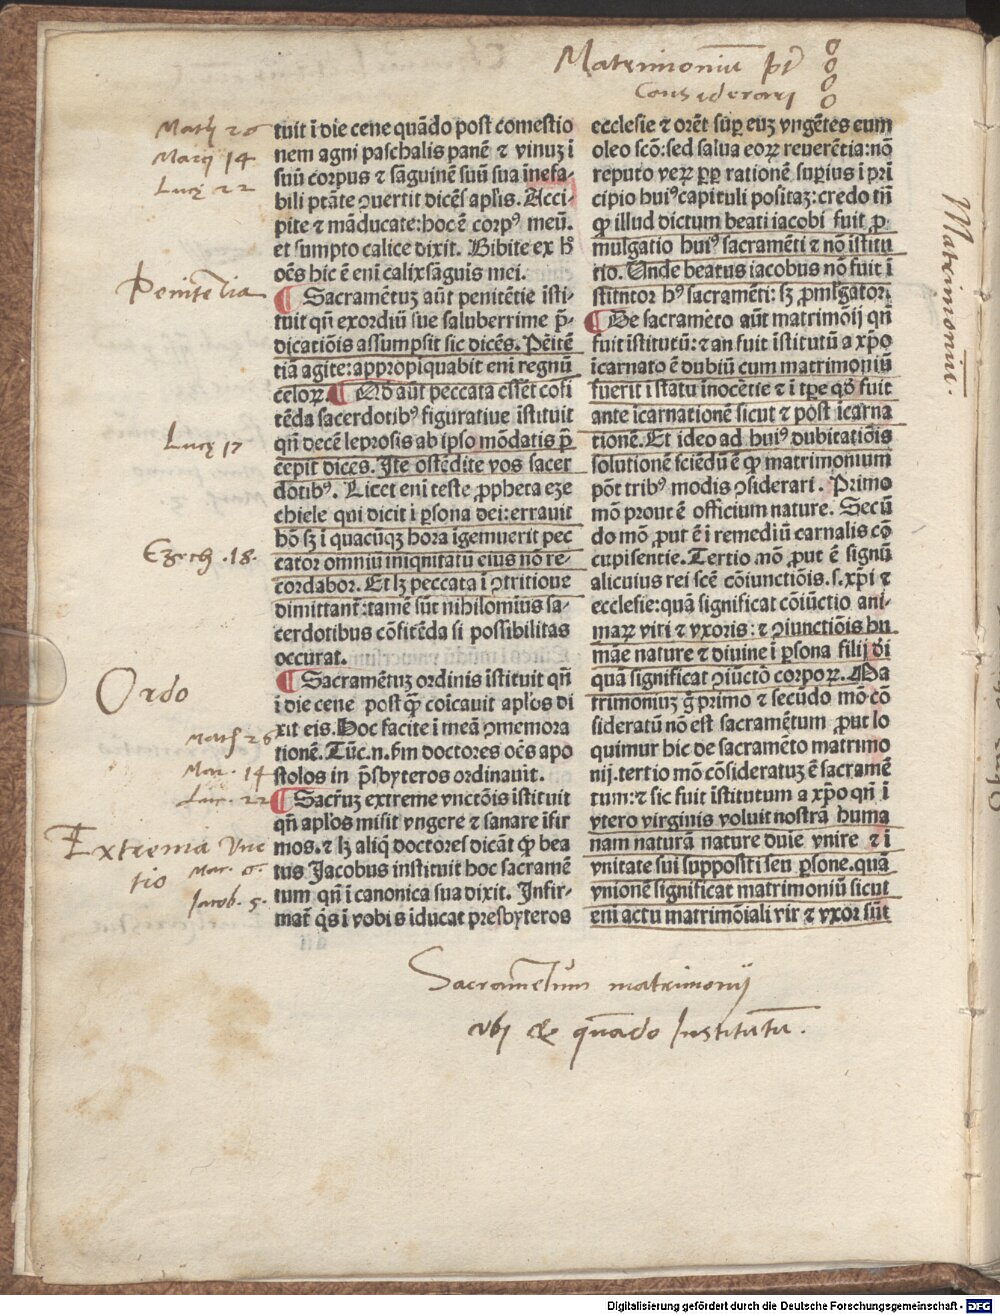 Matrimoniū pt̄
Considerari
Math 26
Marci 14
Lucę 22
tuit ī die cene quādo post comestio
nem agni paschalis panē ⁊ vinuꝫ ī
suū corpus ⁊ sāguinē suū sua īnefa-
bili ptāte ꝯuertit dicēs aplis. Acci-
pite ⁊ māducate: hoc ē corpꝰ meū.
et sumpto calice dixit. Bibite ex h̄
oēs hic ē eni calix sāguis mei.
Penitētia
¶ Sacramētuꝫ aūt penitētie īsti-
tuit qn̄ exordiū sue saluberrime p̄-
dicatiōis assumpsit sic dicēs. Pēitē
tiā agite: appropīquabit eni regnū
celoꝝ. ¶ Qd̄ aūt peccata essēt cōfi
tēda sacerdotibꝰ figuratiue īstituit
qn̄ decē leprosis ab ipso mōdatis p̄
Lucę 17
cepit dicēs. Ite ostēdite vos sacer
dotibꝰ. Licet eni teste ꝓpheta eze
chiele qui dicit ī ꝑsona dei: errauit
hō sꝫ ī quacūqꝫ hora īgemuerit pec
Ezech .18.
cator omniū iniquitatū eius nō re-
cordabor. Et lꝫ peccata ī ꝯtritione
dimittant̄: tamē sūt nihilominus sa-
cerdotibus cōfitēda si possibilitas
occurat.
Ordo
¶ Sacramētuꝫ ordinis īstituit qn̄
ī die cene post qꝫ̄ coīcauit apl'os di
xit eis. Hoc facite ī meā ꝯmemora
Math 26
tionē. Tūc.n. fm doctores oēs apo
Mar. 14
stolos in p̄sbyteros ordinauit.
Luc. 22
¶ Sacr̄uꝫ extreme vnctōis īstituit
qn̄ apl'os misit vngere ⁊ sanare īfir
Extrema Unc
tio
mos. ⁊ lꝫ aliq̄ doctores dicāt ꝙ bea
Mar. 6.
tus Jacobus instituit hoc sacramē
Jacob. 5.
tum qn̄ ī canonica sua dixit. Infir-
mat̄ q̇s ī vobis iducat presbyteros
ecclesie ⁊ orēt sūꝑ euꝫ vngētes eum
oleo scō: sed salua eoꝝ reuerētia: nō
reputo veꝝ ꝓꝑ rationē suꝑius ī pri
cipio huiꝰ capituli positaꝫ: credo tn̄
ꝙ illud dictum beati iacobi fuit ꝓ
mulgatio huiꝰ sacramēti ⁊ nō īstitu
tio. Unde beatus iacobus nō fuit ī
stitutor hꝰ sacramēti: sꝫ ꝓmlgator.
¶ De sacramēto aūt matrimōij qn̄
fuit īstitutū: ⁊ an fuit īstitutū a xp̄o
īcarnato ē dubiū cum matrimoniū
fuerit ī statu īnocētie ⁊ ī tp̄e qd̄ fuit
ante īcarnationē sicut ⁊ post īcarna
tionē. Et ideo ad huiꝰ dubitatiōis
solutionē sciēdū ē ꝙ matrimonium
pōt tribꝰ modis ꝯsiderari. Primo
mō prout ē officium nature. Secū
do mō ꝓut ē ī remediū carnalis cō
cupisentie. Tertio mō ꝓut ē signū
alicuius rei scē cōiunctiōis. s. xp̄i ⁊
ecclesie: quā significat cōiūctio ani-
maꝝ viri ⁊ vxoris: ⁊ ꝯiunctiōis hu
māe nature ⁊ diuine ī ꝑsona filij dī
quā significat ꝯiuctō corpoꝝ. Ma
trimoniuꝫ g̊ primo ⁊ secūdo mō cō
sideratū nō est sacramētum ꝓut lo
quimur hic de sacramēto matrimo
nij. tertio mō cōsideratuꝫ ē sacramē
tum: ⁊ sic fuit īstitutum a xp̄o qn̄ ī
vtero virginis voluit nostrā huma
nam naturā nature diuīe vnire ⁊ ī
vnitate sui suppositi seu ꝑsone. quā
vnionē significat matrimoniū sicut
eni actu matrimōiali vir ⁊ vxor sūt
Matrimoniū.
Sacramētum matrimonij
vbj & quādo Institutū.
Digitalisierung gefördert durch die Deutsche Forschungsgemeinschaft - DFG